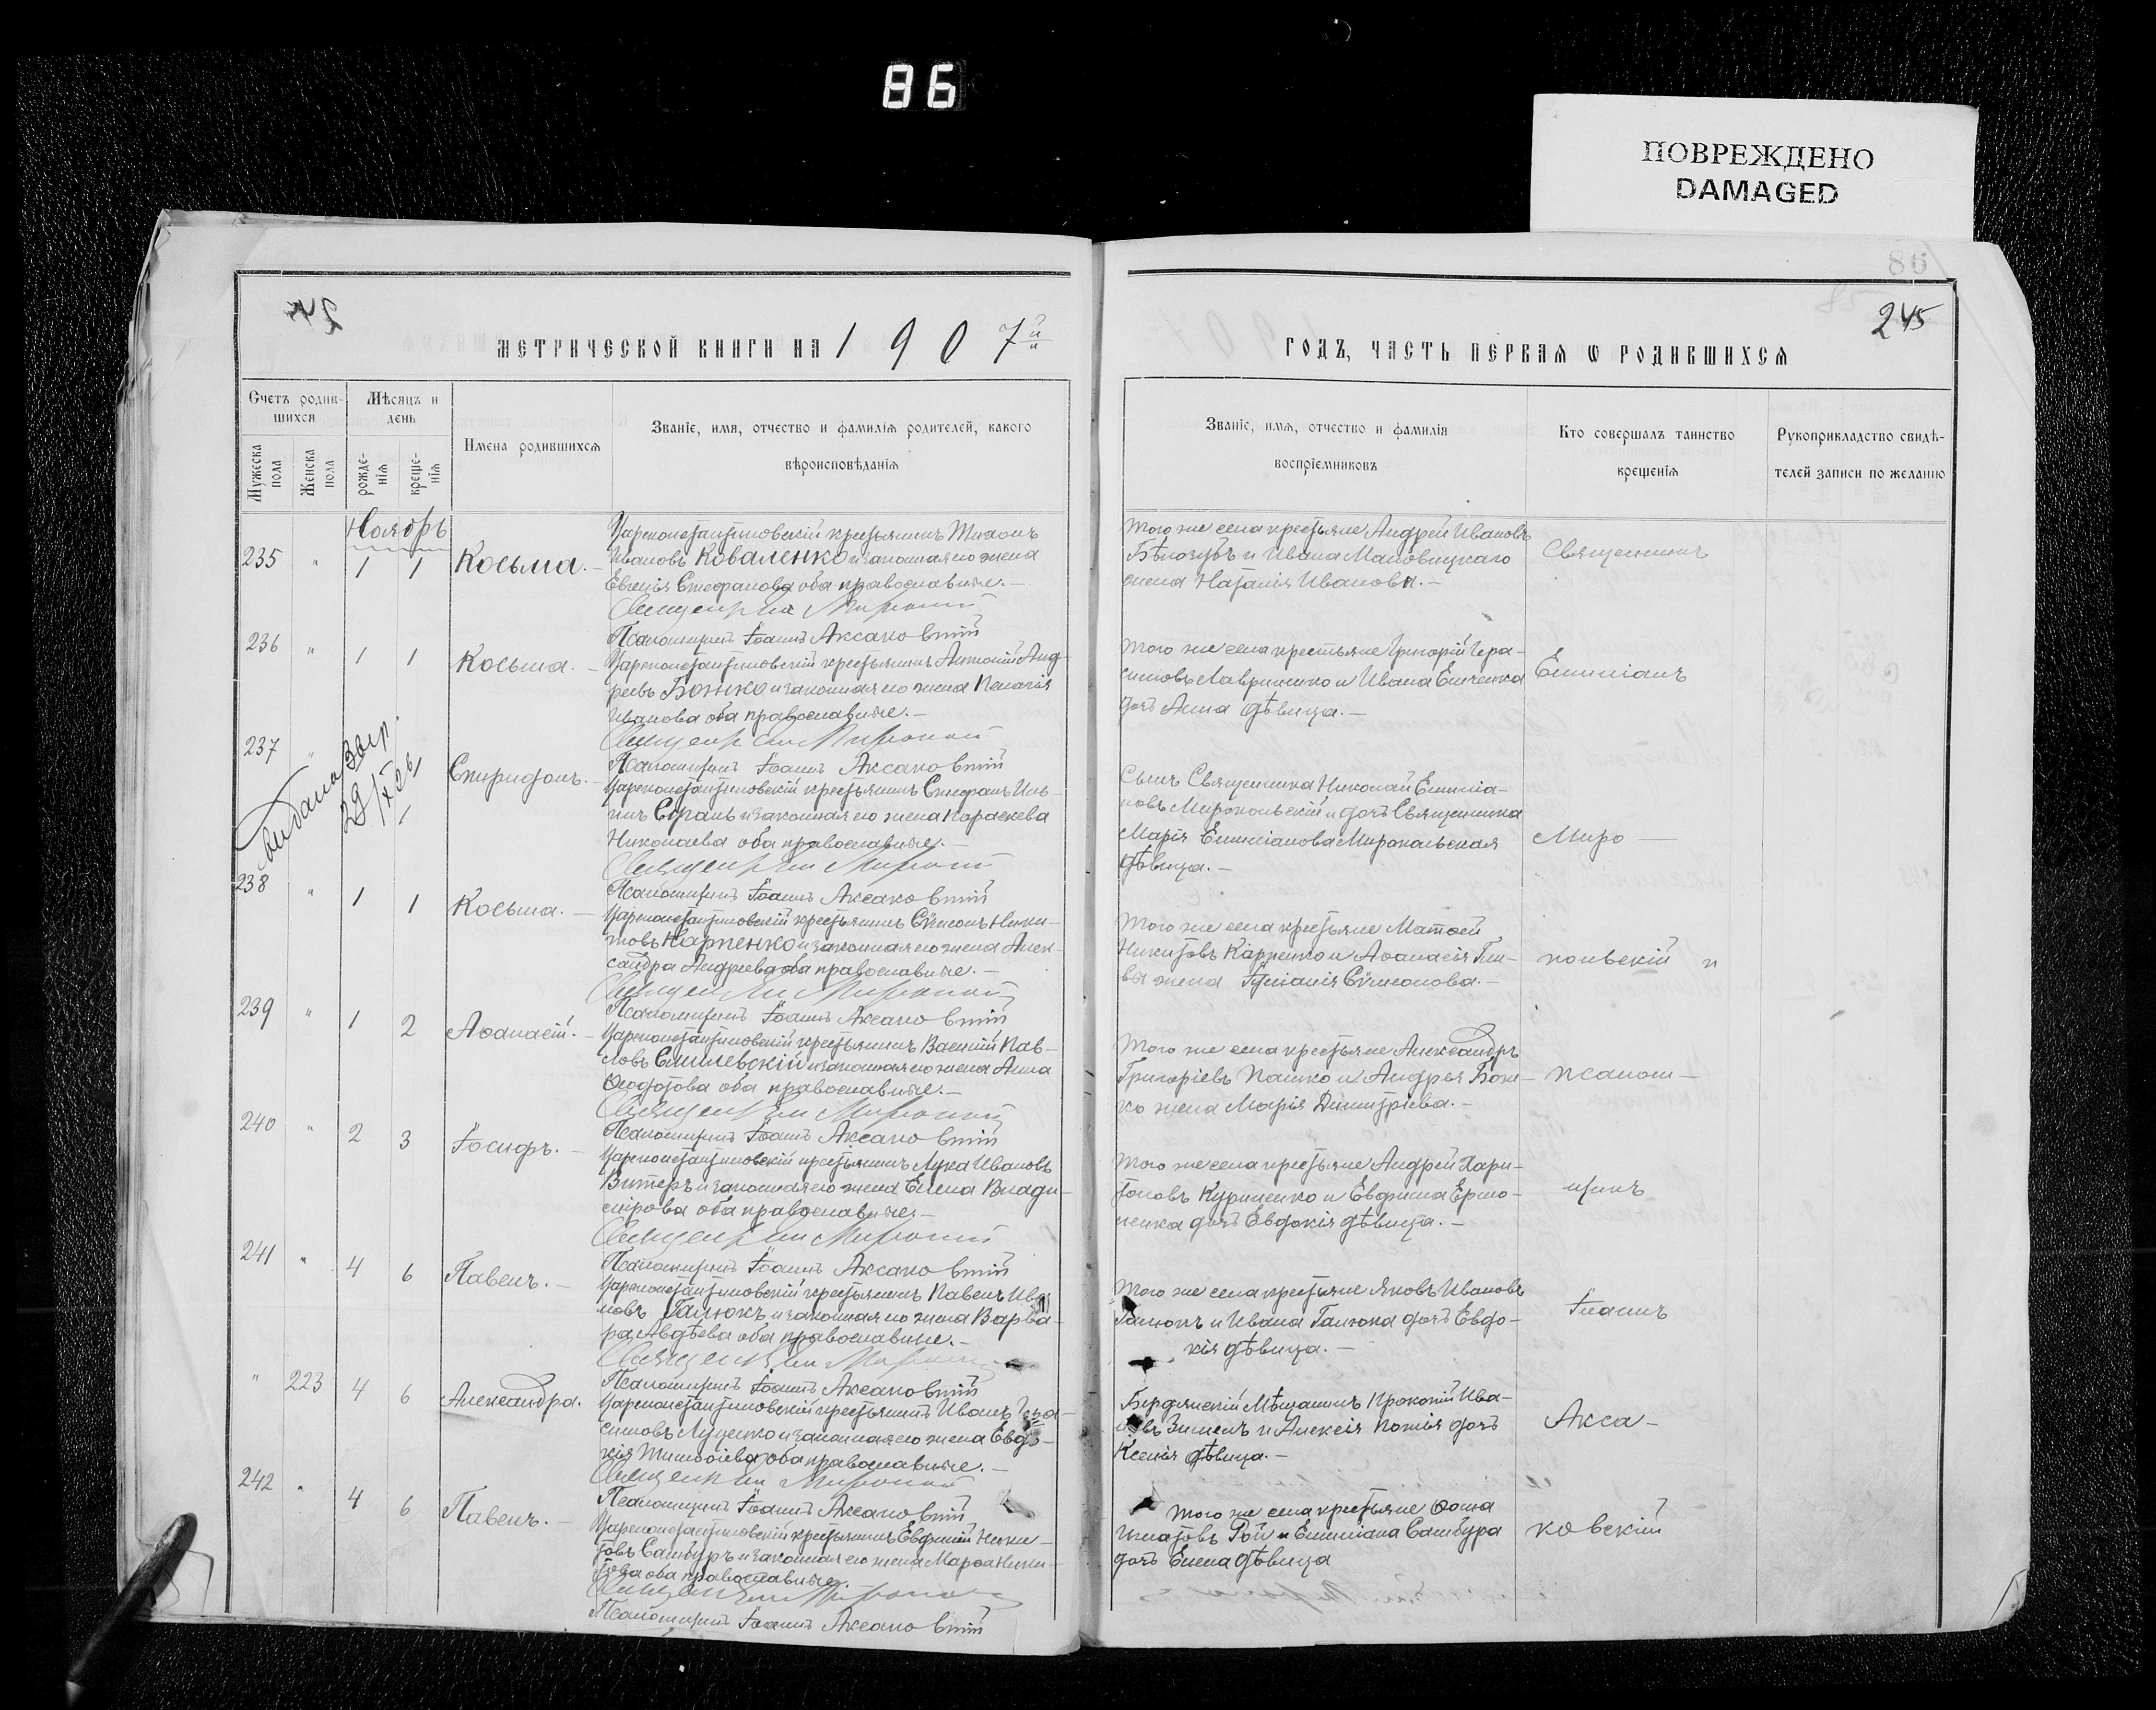 86
ПОВРЕЖДЕНО
DAMAGED
86
245
МЕТРИЧЕСКОЙ КНИГИ НА 1907й
ГОДЪ, ЧАСТЬ ПЕРВАЯ Ѡ РОДИВШИХСЯ
Счетъ родив-
шихся
Мужеска
пола
Женска
пола
Мѣсяцъ и
день
рожде-
нія
креще-
нія
Имена родившихся
Званіе, имя, отчество и фамилія родителей, какого
вѣроисповѣданія
Званіе, имя, отчество и фамилія
воспріемниковъ
Кто совершалъ таинство
крещенія
Рукоприкладство свидѣ-
телей записи по желанію
Ноябрь
235 " 1 1 Косьма. –
Цареконстантиновскій крестьянинъ Тихонъ
Ивановъ Коваленко и законная его жена
Евгенія Стефанова оба православные. –
Псаломщикъ Іоаннъ Аксаковскій
Того же села крестьяне Андрей Ивановъ
Бѣлозубъ и Ивана Малови­цкаго
жена Наталія Иванова. –
Священникъ
236 " 1 1 Косьма. –
Цареконстантиновскій крестьянинъ Антоній Анд-
реевъ Божко и законная его жена Пелагія
Иванова оба православные. –
Псаломщикъ Іоаннъ Аксаковскій
Того же села крестьяне Григорій Гера-
симовъ Лавриненко и Ивана Емченка
дочь Анна дѣвица. –
Емиліанъ
237 "
29/X 26
Спиридонъ. –
Цареконстантиновскій крестьянинъ Стефанъ Иль-
инъ и законная его жена Параскева
Николаева оба православные. –
Псаломщикъ Іоаннъ Аксаковскій
Сынъ Священника Николай Емиліа-
новъ Миропольскій и дочь Священника
Марія Емиліанова Миропольская
дѣвица. –
Миро –
238 " 1 1 Косьма. –
Цареконстантиновскій крестьянинъ Сѵмеонъ Ники-
товъ Карпенко и законная его жена Алек-
сандра Андреева оба православные. –
Псаломщикъ Іоаннъ Аксаковскій
Того же села крестьяне Матѳей
Никитовъ Карпенко и Аѳанасія
жена Іуліанія Сѵмеонова. –
польскій и
239 " 1 2 Аѳанасій. –
Цареконстантиновскій крестьянинъ Василій Пав-
ловъ и законная его жена Анна
Ѳеодотова оба православные. –
Псаломщикъ Іоаннъ Аксаковскій
Того же села крестьяне Александръ
Григоріевъ Пашко и Андрея Бож-
ко жена Марія Димитріева. –
псалом –
240 " 2 3 Іосифъ. –
Цареконстантиновскій крестьянинъ Лука Ивановъ
Витеръ и законная его жена Елена Влади-
мірова оба православные. –
Псаломщикъ Іоаннъ Аксаковскій
Того же села крестьяне Андрей Хари-
тоновъ Куриленко и Евфима Ермо-
ленка дочь Евдокія дѣвица. –
щикъ
241 " 4 6 Павелъ. –
Цареконстантиновскій крестьянинъ Павелъ Ива-
новъ Галюкъ и законная его жена Варва-
ра Авдѣева оба православные. –
Псаломщикъ Іоаннъ Аксаковскій
Того же села крестьяне Яковъ Ивановъ
Галюкъ и Ивана Галюка дочь Евдо-
кія дѣвица. –
Іоаннъ
" 223 4 6 Александра.
Цареконстантиновскій крестьянинъ Иванъ Гера-
симовъ Луценко и законная его жена Евдо-
кія Тимоѳіева оба православные. –
Псаломщикъ Іоаннъ Аксаковскій
Бердянскій Мѣщанинъ Прокопій Ива-
новъ и Алексія дочь
Ксенія дѣвица. –
Акса –
242 " 4 6 Павелъ. –
Цареконстантиновскій крестьянинъ Евфимій Ники-
товъ Самбуръ и законная его жена Марѳа Ники-
това оба православные.
Псаломщикъ Іоаннъ Аксаковскій
Того же села крестьяне Ѳома
Игнатовъ Рой и Емиліана Самбура
дочь Елена дѣвица
ковскій